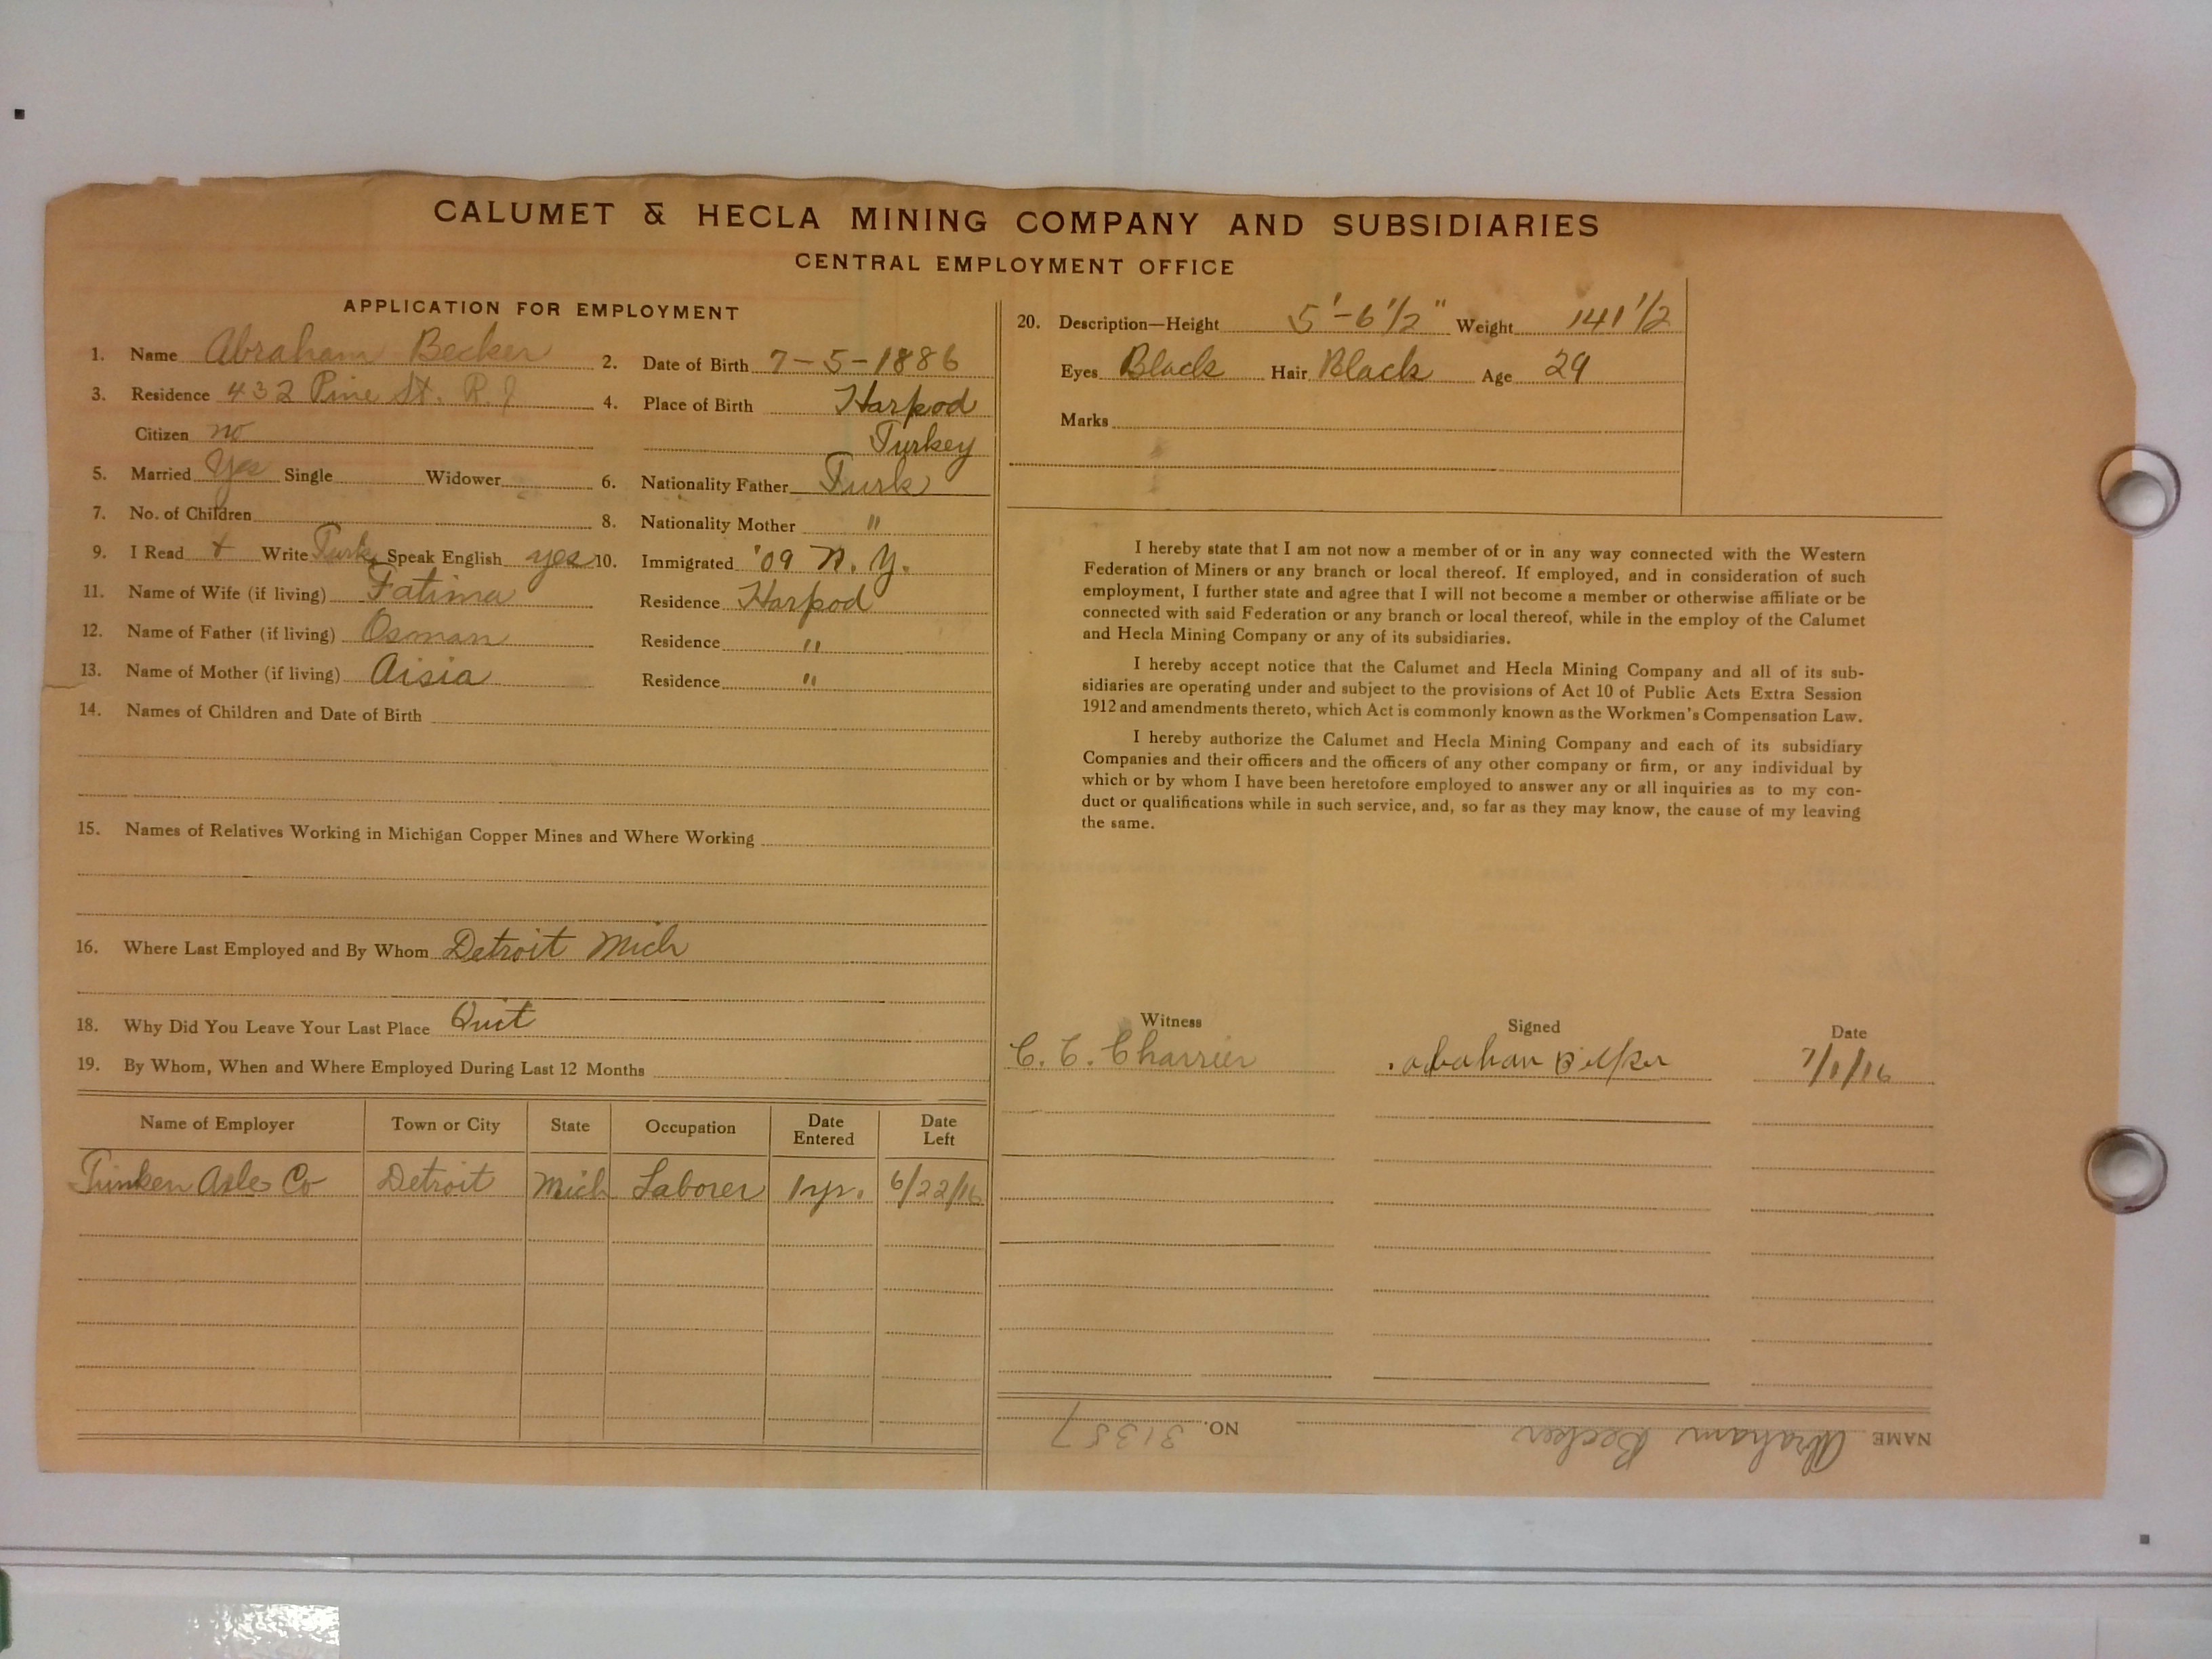 CALUMET & HECLA MINING COMPANY AND SUBSIDIARIES
CENTRAL EMPLOYMENT OFFICE
APPLICATION FOR EMPLOYMENT
1. Name Abraham Becker 2. Date of Birth 7-5-1886
3. Residence 432 Pine St. R.J 4. Place of Birth Harpod
Citizen no Turkey
5. Married Yes Single Widower 6. Nationality Father Turk
7. No. of Children 8. Nationality Mother "
9. I Read + Write Turk Speak English yes 10. Immigrated '09 N.Y.
11. Name of Wife (if living) Fatima Residence Harpod
12. Name of Father (if living) Osman Residence "
13. Name of Mother (if living) Aisia Residence "
14. Names of Children and Date of Birth
15. Names of Relatives Working in Michigan Copper Mines and Where Working
16. Where Last Employed and By Whom Detroit Mich
18. Why Did You Leave Your Last Place Quit
19. By Whom, When and Where Employed During Last 12 Months
Name of Employer Town or City State Occupation Date Entered Date Left
Timken Axle Co Detroit Mich Laborer 1 yr. 6/22/16
20. Description—Height 5'-6 1/2" Weight 141 1/2
Eyes Black Hair Black Age 29
Marks
I hereby state that I am not now a member of or in any way connected with the Western
Federation of Miners or any branch or local thereof. If employed, and in consideration of such
employment, I further state and agree that I will not become a member or otherwise affiliate or be
connected with said Federation or any branch or local thereof, while in the employ of the Calumet
and Hecla Mining Company or any of its subsidiaries.
I hereby accept notice that the Calumet and Hecla Mining Company and all of its sub-
sidiaries are operating under and subject to the provisions of Act 10 of Public Acts Extra Session
1912 and amendments thereto, which Act is commonly known as the Workmen's Compensation Law.
I hereby authorize the Calumet and Hecla Mining Company and each of its subsidiary
Companies and their officers and the officers of any other company or firm, or any individual by
which or by whom I have been heretofore employed to answer any or all inquiries as to my con-
duct or qualifications while in such service, and, so far as they may know, the cause of my leaving
the same.
Witness Signed Date
C. C. Charrier 7/1/16
NAME Abraham Becker NO. 31357